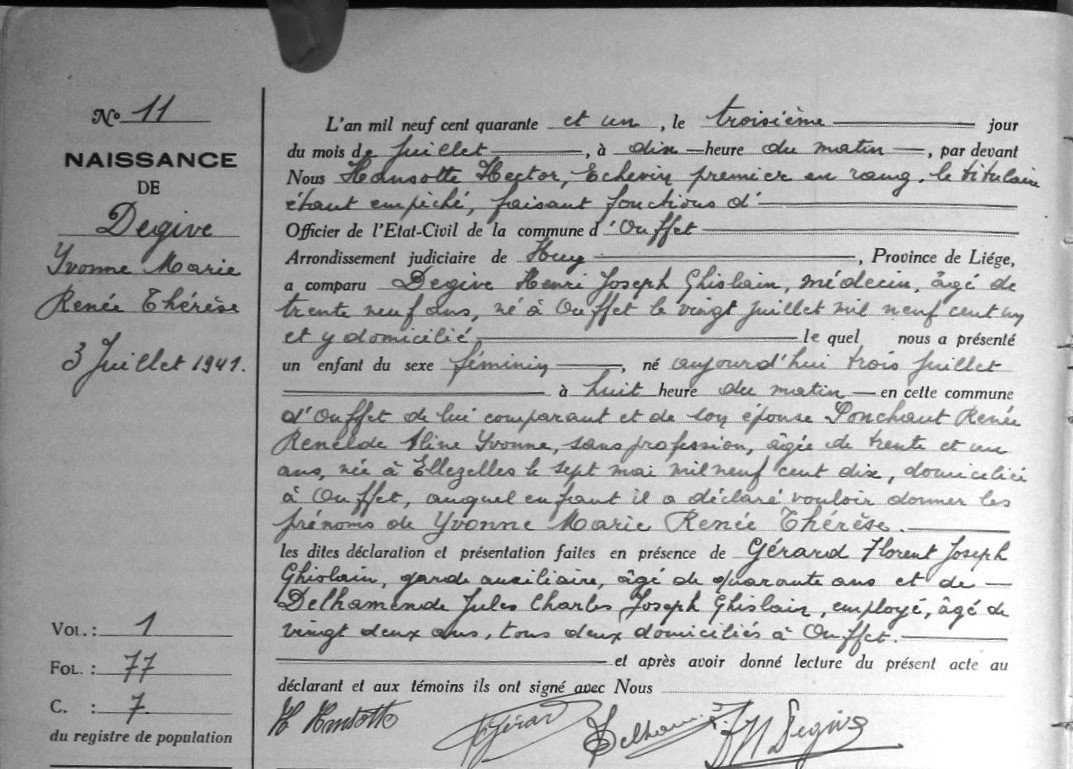 N° 11
NAISSANCE
DE
Degive
Yvonne Marie
Renée Thérèse
3 Juillet 1941.
VOL. : 1
FOL. : 77
C. : 7
du registre de population
L'an mil neuf cent quarante et un, le troisième jour
du mois de juillet, à dix heure du matin, par devant
Nous Hansotte Hector, Echevin premier en rang, le titulaire
étant empêché, faisant fonctions d'
Officier de l'Etat-Civil de la commune d'Ouffet
Arrondissement judiciaire de Huy, Province de Liége,
a comparu Degive Henri Joseph Ghislain, médecin, âgé de
trente neuf ans, né à Ouffet le vingt juillet mil neuf cent un
et y domicilié, le quel nous a présenté
un enfant du sexe féminin, né aujourd'hui trois juillet
à huit heure du matin en cette commune
d'Ouffet de lui comparant et de son épouse Ponchaut Renée
Renelde Aline Yvonne, sans profession, âgée de trente et un
ans, née à Ellezelles le sept mai mil neuf cent dix, domiciliée
à Ouffet, auquel enfant il a déclaré vouloir donner les
prénoms de Yvonne Marie Renée Thérèse.
les dites déclaration et présentation faites en présence de Gérard Florent Joseph
Ghislain, garde auxiliaire, âgé de quarante ans et de
Delhamende Jules Charles Joseph Ghislain, employé, âgé de
vingt deux ans, tous deux domiciliés à Ouffet.
et après avoir donné lecture du présent acte au
déclarant et aux témoins ils ont signé avec Nous
H Hansotte Gérard Degive